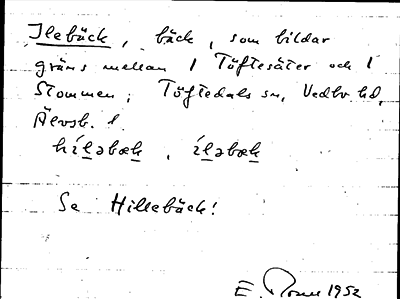 Ilebäck, bäck, som bildar
gräns mellan 1 Töftesäter och 1
Stommen; Töftedals sn, Vedbo hd,
Älvsb. l.
híləbæk, íləbæk
Se Hillebäck!
E. 1952